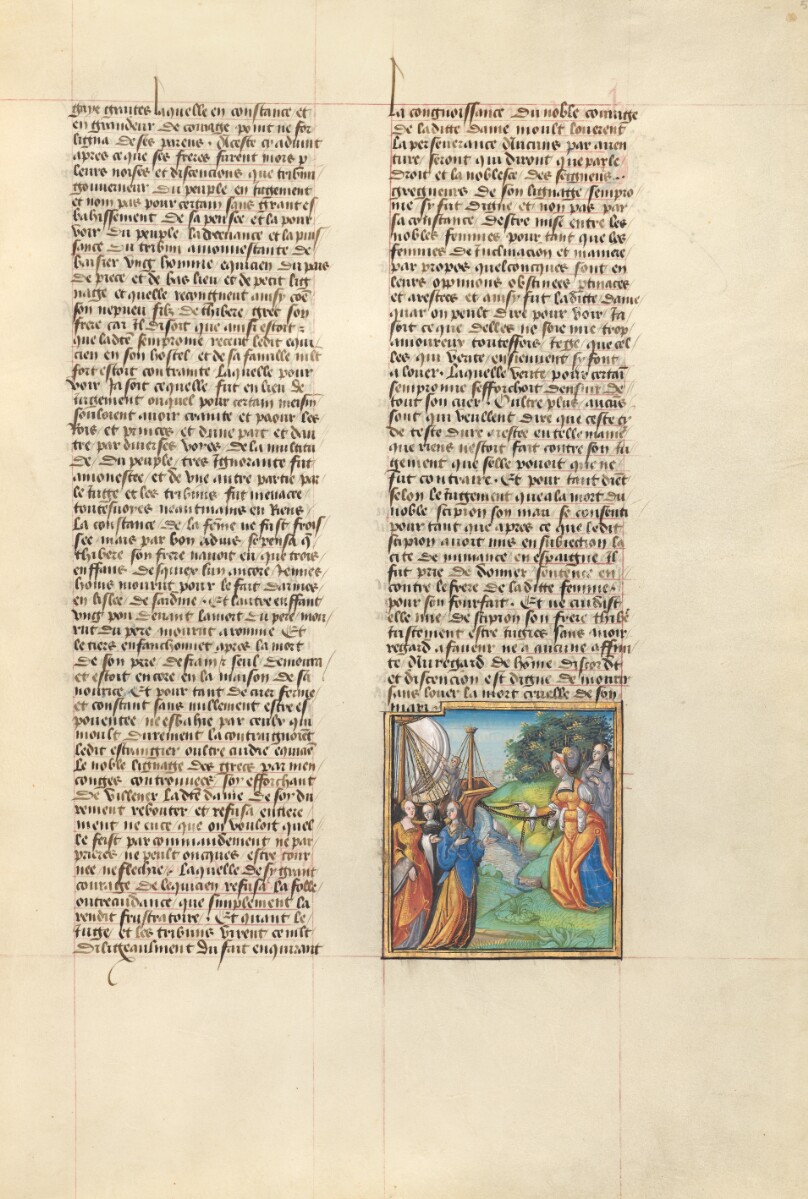 gaye grantes laquelle en constance et
en grandeur de courage point ne for
ligna de ses parens. Aceste cy aduint
apres ce que ses freres furent mors p
leurs noises et discencions que tribun
gouuerneur du peuple en iugement
et non pas pour certain sans grant es
bahissement de sa pensee et la pour
voir du peuple la
sance du tribun amonnestante de
baisier vng homme equicien du pais
de piece et de bas lieu et de petit lig
nage et quelle recongneut ainsy come
son nepueu filz de thibere grec son
frere car il disoit que ainsi estoit
que ladte sempronie receut ledit equi
cien en son hostel et de sa famille
fort estoit contrainte laquelle pour
voir ia soit ce quelle fut en lieu de
iugement ouquel pour certain meism
souloient auoir crainte et paour les
Rois et princes et dune part et dau
tre par diuerses voyes de la multitu
de du peuple tres ignorante fut
amonestee et de vne autre partie par
le iuge et les tribuns fut menacee
neantmains en riens
la constance de la feme ne fust frois
see mais par bon aduis se pensa q
thibere son frere nauoit eu que trois
enffans desquelx lun ancore iennes
homs mourut pour le fait darmes
en lisle de sardine. Et lautre enffant
vng pou deuant la mort du pere mou
rut du pere mourut a romme Et
le tiers enfanchonnet apres la mort
de son pere seul demoura
et estoit encore en la maison de sa
nourice Et pour tant de cuer ferme
et constant sans nullement estre es
pouentee ne esbahie par ceulx qui
moult durement la contraignoiet
ledit estrangier oultre cuidie
le noble lignage des grecs par men
conges controuuees soy efforchant
de villener ladte dame de soy du
rement rebouter et refusa entiere
ment ne ce que on vouloit quel
le feist par commandement ne par
prieres ne peult oncques estre tour
nee ne flechie. laquelle de sy grant
courage de lequicien refusa la folle
oultrecuidance que simplement la
rendit frustratoire. Et quant le
iuge et les tribuns virent ce
diligeaulment du fait enquirant
la congnoissance du noble courage
de laditte dame moult louerent
la perseuerance Aucuns par auen
ture seront qui diront que par le
droit et la noblesse des seigneurs
gregneurs de son lignage sempro
nie sy fut digne et non pas par
sa constance destre mise entre les
nobles femmes pour tant que les
femmes de inclinacion et maniere
par propos quelconcques sont en
leurs opinions obstinees
et arestees et ainsy fut laditte dame
quar on peult dire pour voir ia
soit ce que delles ne soie mie trop
amoureux touteffois iuge que cel
les qui verite ensieuuent sy font
a louer. laquelle verite pour certain
sempronie sefforchoit densuir de
tout son cuer. Oultre plus aucus
sont qui veullent dire que ceste cy
de teste dure estre en telle manie
que riens nestoit fait contre son iu
gement que selle pouoit que ne
fut contraire. Et pour tant dient
selon le iugement que a la mort du
noble scipion son mari se consenti
pour tant que apres ce que ledit
scipion auoit mis en subiection la
cite de numance en espaigne il
fut prie de donner sentence en
contre le frere de laditte femme
pour son fourfait. Et ne cuidist
elle mie de scipion son frere thibe
iustement estre iugies sans auoir
regard a faueur ne a aucune affini
te Au regard de home discordt
et discencion est digne de mourir
sans louer la mort cruelle de son
mari.